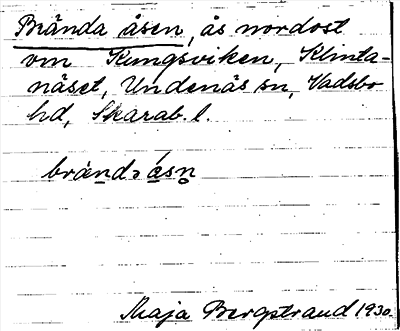 Brända åsen, ås nordost
om Kungsviken, Klinta-
näset, Undenäs sn, Vadsbo
hd, Skarab. l.
brända åsn̥
Maja Bergstrand 1930.